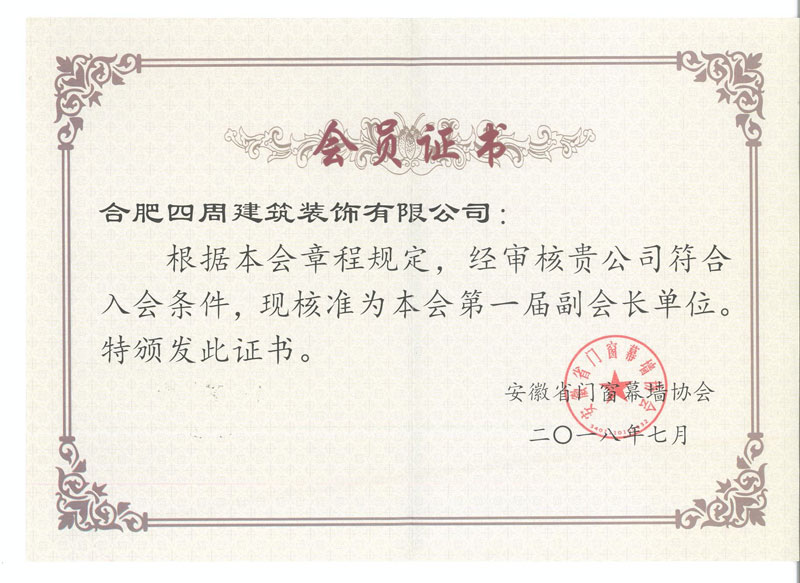 会员证书
合肥四周建筑装饰有限公司：
根据本会章程规定，经审核贵公司符合
入会条件，现核准为本会第一届副会长单位。
特颁发此证书。
安徽省门窗幕墙协会
安徽省门窗幕墙协会
二〇一八年七月